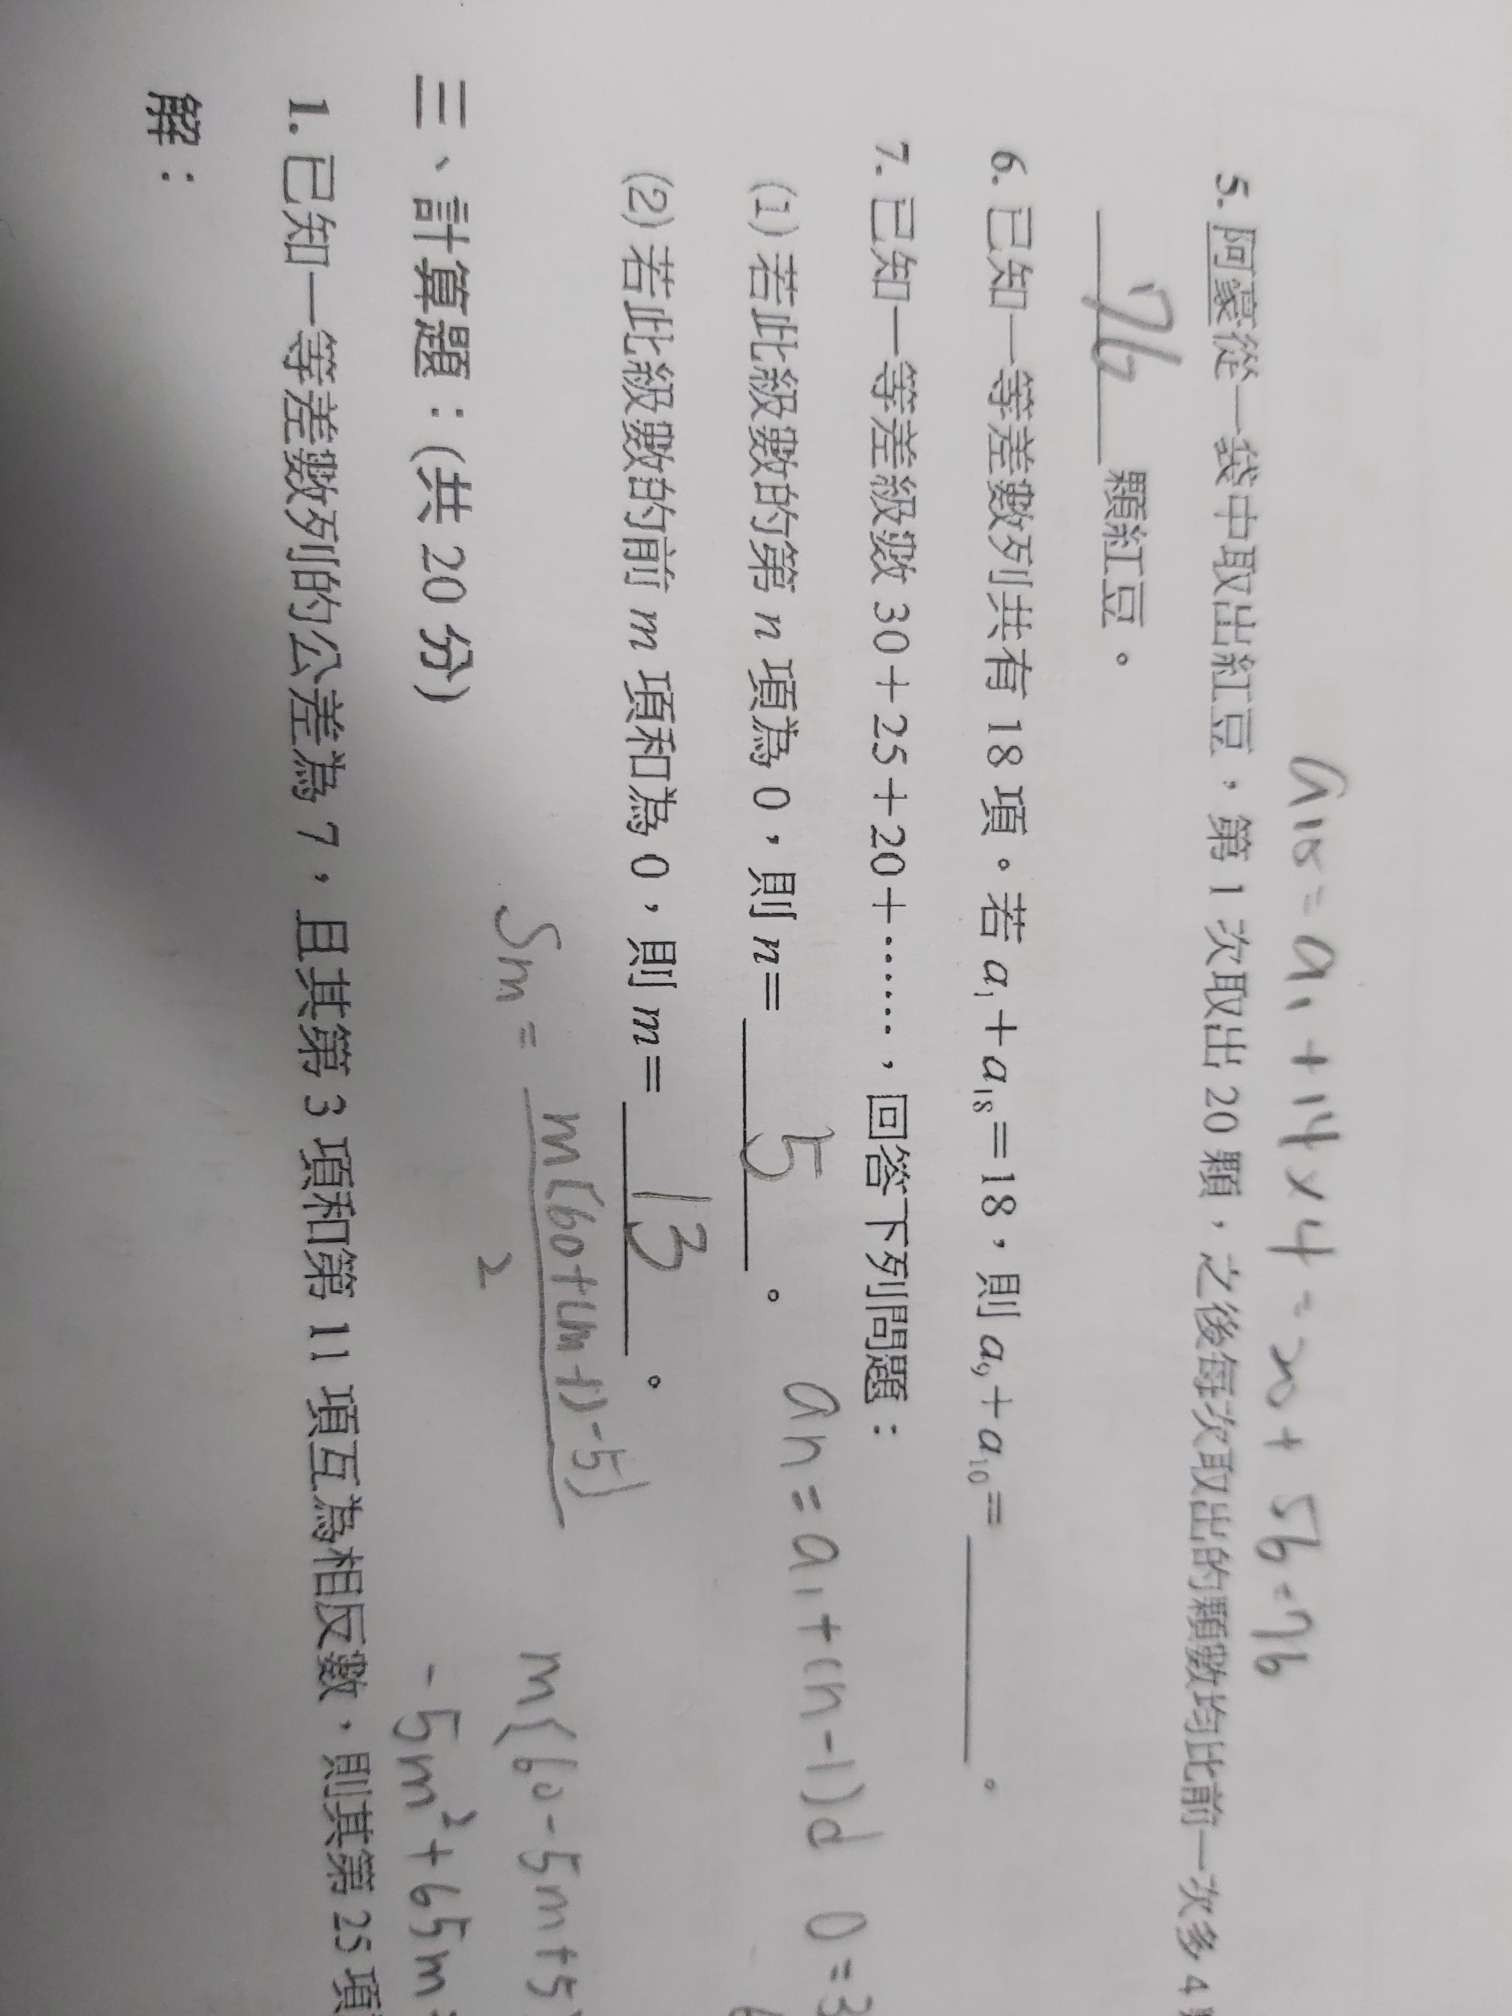 a₁₅ = a₁ + 14 × 4 = 20 + 56 = 76
5. 阿豪從一袋中取出紅豆，第 1 次取出 20 顆，之後每次取出的顆數均比前一次多 4
76 顆紅豆。
6. 已知一等差數列共有 18 項。若 a₁＋a₁₈＝18，則 a₉＋a₁₀＝＿＿＿＿。
7. 已知一等差級數 30＋25＋20＋……，回答下列問題：
(1) 若此級數的第 n 項為 0，則 n＝ 5 。 an = a₁ + (n-1)d 0 = 3
(2) 若此級數的前 m 項和為 0，則 m＝ 13 。
Sm = m(60+(m-1)-5) / 2 m(60-5m+5
三、計算題：(共 20 分) -5m²+65m=
1. 已知一等差數列的公差為 7，且其第 3 項和第 11 項互為相反數，則其第 25 項
解：